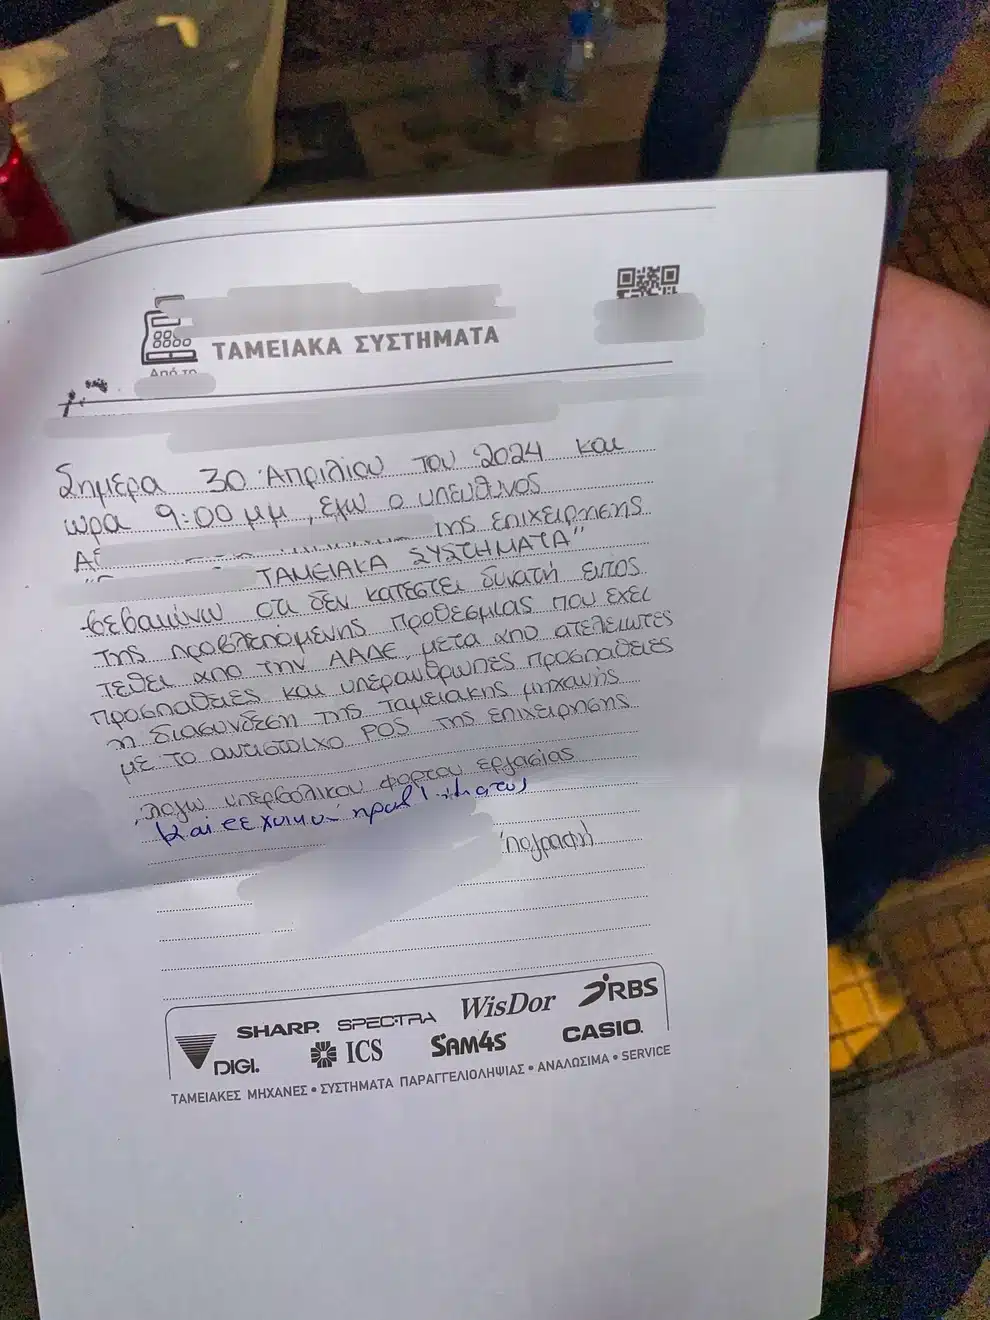 ΤΑΜΕΙΑΚΑ ΣΥΣΤΗΜΑΤΑ
Από το
Σημερα 30 Απριλίου του 2024 και
ωρα 9:00 μμ, εγω ο υπευθηνος
της επιχειρησης
ΤΑΜΕΙΑΚΑ ΣΥΣΤΗΜΑΤΑ"
βεβαιωνω οτι δεν κατεστει δυνατή εντος
της προβλεπομενης προθεσμιας που εχει
τεθει απο την ΑΑΔΕ, μετα απο ατελειωτες
προσπαθειες και υπερανθρωπες προσπαθειες
η διασυνδεση της ταμειακης μηχανής
με το αντιστοιχο POS της επιχειρησης
,λογω υπερβολικου φορτου εργασίας
και
DIGI. SHARP. SPECTRA WisDor RBS
ICS SAM4S CASIO.
ΤΑΜΕΙΑΚΕΣ ΜΗΧΑΝΕΣ • ΣΥΣΤΗΜΑΤΑ ΠΑΡΑΓΓΕΛΙΟΛΗΨΙΑΣ • ΑΝΑΛΩΣΙΜΑ • SERVICE